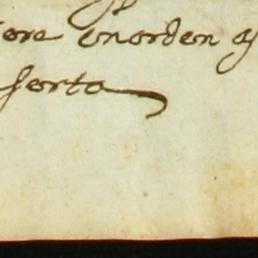 ore vnorden
ferta